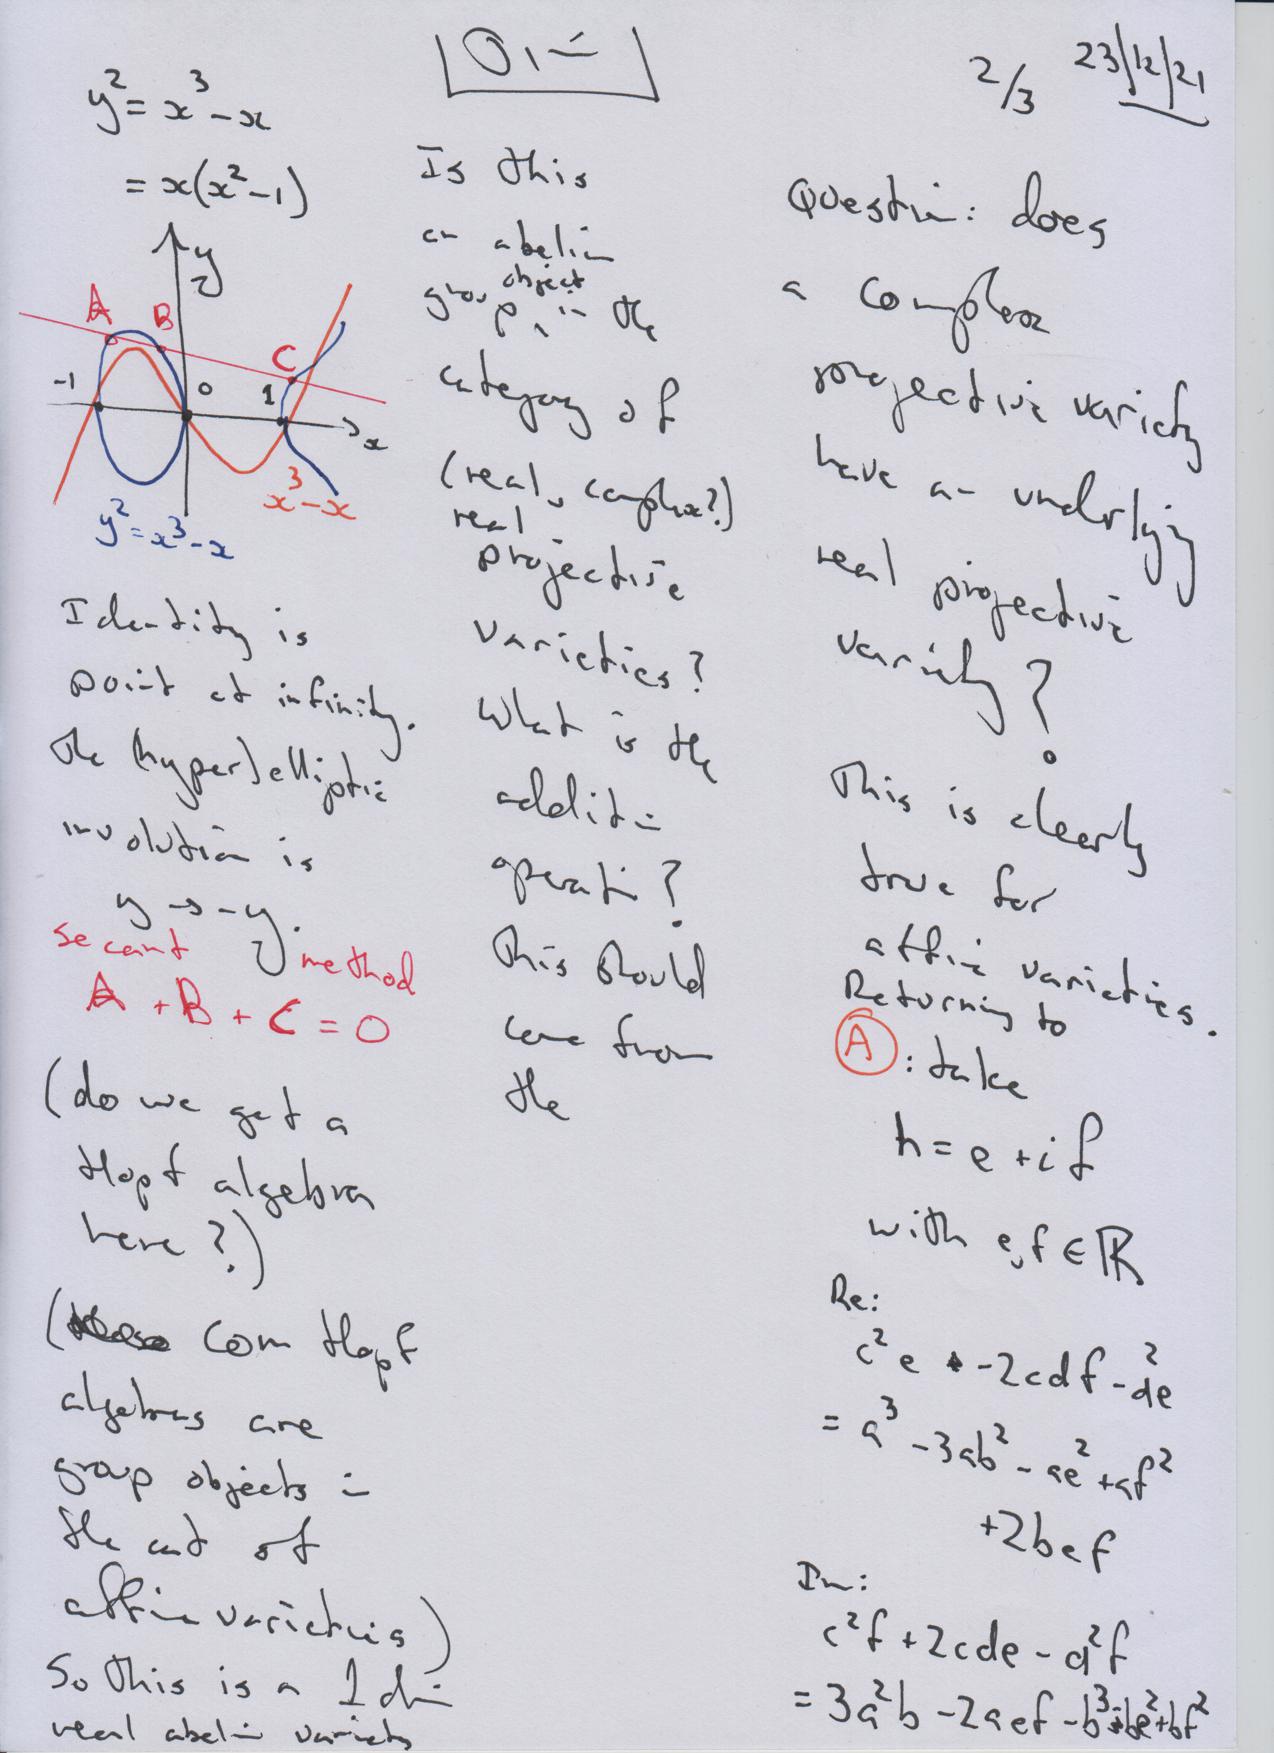 2/3 23/12/21
y² = x³ - x
= x(x² - 1)
y
A
B
C
-1
0
1
x
x³ - x
y² = x³ - x
Identity is
point at infinity.
The (hyper)elliptic
involution is
y → -y.
secant method
A + B + C = 0
(do we get a
Hopf algebra
here?)
( Com Hopf
algebras are
group objects in
the cat of
affine varieties)
So this is a 1 dim
real abelian variety
Is this
an abelian
group object in the
category of
(real, complex?)
real
projective
varieties?
What is the
addition
operation?
This should
come from
the
Question: does
a complex
projective variety
have an underlying
real projective
variety?
This is clearly
true for
affine varieties.
Returning to
A : take
h = e + if
with e, f ∈ ℝ
Re:
c²e - 2cdf - d²e
= a³ - 3ab² - ae² + af²
+ 2bef
Im:
c²f + 2cde - d²f
= 3a²b - 2aef - b³ - be² + bf²